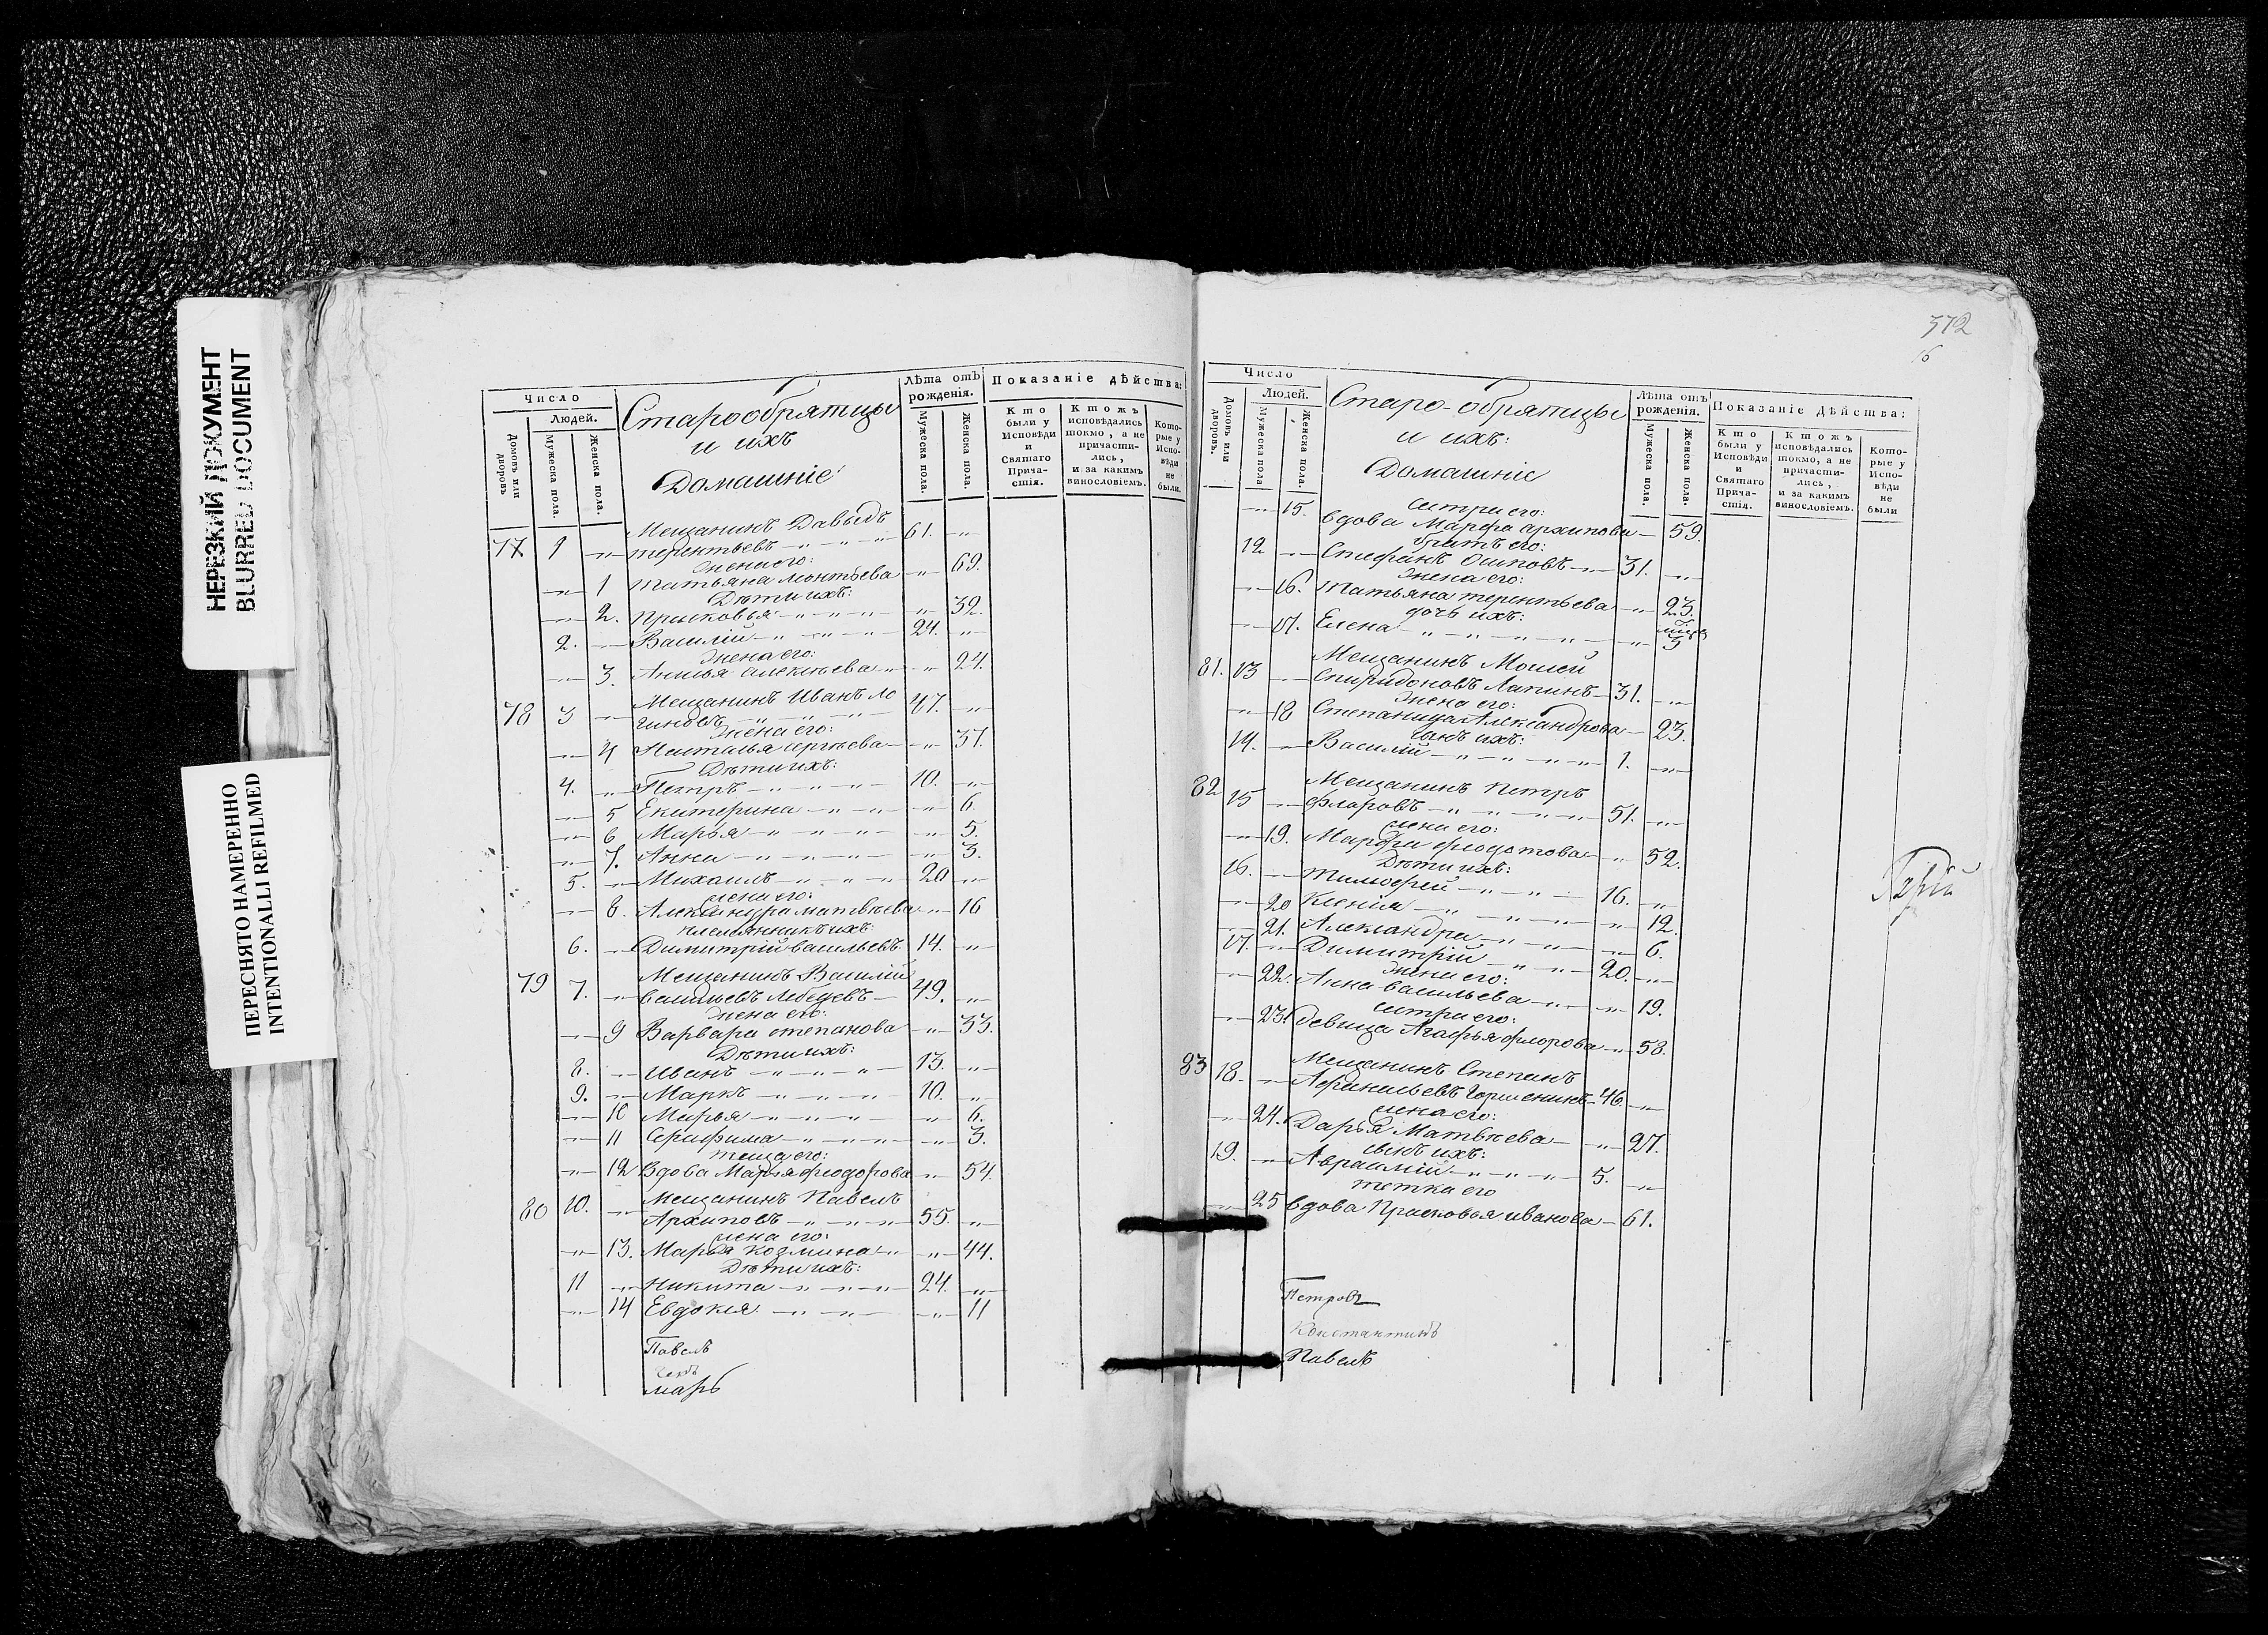 НЕРЕЗКИЙ ДОКУМЕНТ
BLURRED DOCUMENT
ПЕРЕСНЯТО НАМЕРЕННО
INTENTIONALLI REFILMED
Число
Людей.
Домовъ или дворовъ
Мужеска пола.
Женска пола.
Старообрятцы
и ихъ
Домашніе
Лѣта отъ рожденія.
Мужеска пола.
Женска пола.
Показаніе дѣйства:
Кто были у Исповѣди и Святаго Причастія.
Ктожъ исповѣдались токмо, а не причастились, и за какимъ винословіемъ.
Которые у Исповѣди не были.
Мещанинъ Давыдъ
77 1 терентьевъ 61.
Жена его:
1 Татьяна леонтьева 69.
Дѣти ихъ:
2. Прасковья 32.
2. Василій 24.
Жена его:
3. Анисья алексѣева 24.
Мещанинъ Иванъ ло
78 3 гиновъ 47.
Жена его:
4 Наталья сергѣева 37.
Дѣти ихъ:
4. Петръ 10.
5 Екатерина 6.
6 Марья 5.
7. Анна 3.
5. Михаилъ 20
жена его:
8. Александра матвѣева 16
племянникъ ихъ:
6. Димитрій васильевъ 14.
Мещанинъ Василій
79 7. васильевъ лебедевъ 49.
Жена его:
9 Варвара степанова 33.
Дѣти ихъ:
8. Иванъ 13.
9. Маркъ 10.
10 Марья 6.
11 Серафима 3.
теща его:
12 Вдова Марья федорова 54.
Мещанинъ Павелъ
80 10. Архиповъ 55.
жена его:
13. Марья козмина 44.
Дѣти ихъ:
11 Никита 24.
14 Евдокія 11
Павелъ
марь
372
16
Число
Людей.
Домовъ или дворовъ.
Мужеска пола
Женска пола.
Старо-обрятцы
и ихъ:
Домашніе
Лѣта отъ рожденія.
Мужеска пола.
Женска пола.
Показаніе дѣйства:
Кто были у Исповѣди и Святаго Причастія.
Ктожъ исповѣдались токмо, а не причастились, и за какимъ винословіемъ.
Которые у Исповѣди не были
сестра его:
15. вдова Марфа архипова 59.
братъ его:
12 Стефанъ Осиповъ 31.
Жена его:
16. Татьяна терентьева 23.
дочь ихъ:
17. Елена 3
Мещанинъ Мосей
81. 13 Спиридоновъ Лапинъ 31.
Жена его:
18 Степанида Александрова 23.
сынъ ихъ:
14. Василій 1.
Мещанинъ Петръ
82 15 Фларовъ 51.
жена его:
19. Марфа федотова 52.
Дѣти ихъ:
16. Тимофей 16.
20 Ксенія 12.
21. Александра 6.
17. Димитрій 20.
Жена его:
22. Анна васильева 19.
сестра его:
23. девица Агафья флорова 58.
Мещанинъ Степанъ
83 18. Афанасьевъ 46.
жена его:
24. Дарья Матвѣева 27.
сынъ ихъ:
19. Авраамій 5.
тетка его
25 вдова Прасковья иванова 61.
Петровъ
Константинъ
Павелъ